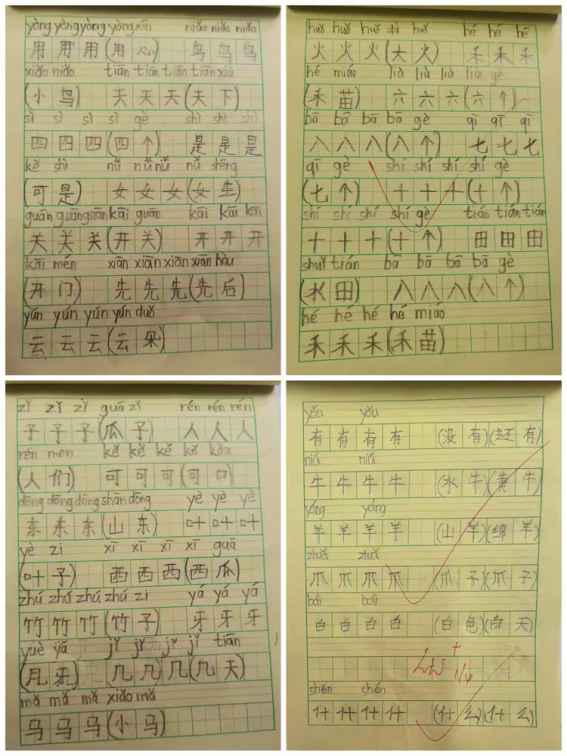 yòng yòng yòng yòng xīn niǎo niǎo niǎo
用 用 用 (用 心) 鸟 鸟 鸟
xiǎo niǎo tiān tiān tiān tiān xià
(小 鸟) 天 天 天 (天 下)
sì sì sì sì gè shì shì shì
四 四 四 (四 个) 是 是 是
kě shì nǚ nǚ nǚ nǚ shēng
(可 是) 女 女 女 (女 生)
guān guān guān kāi guān kāi kāi kāi
关 关 关 (开 关) 开 开 开
kāi mén xiān xiān xiān xiān hòu
(开 门) 先 先 先 (先 后)
yún yún yún yún duǒ
云 云 云 (云 朵)
huǒ huǒ huǒ dà huǒ hé hé hé
火 火 火 (大 火) 禾 禾 禾
hé miáo liù liù liù liù gè
(禾 苗) 六 六 六 (六 个)
bā bā bā bā gè qī qī qī
八 八 八 (八 个) 七 七 七
qī gè shí shí shí shí gè
(七 个) 十 十 十 (十 个)
shí shí shí shí gè tián tián tián
十 十 十 (十 个) 田 田 田
shuǐ tián bā bā bā bā gè
(水 田) 八 八 八 (八 个)
hé hé hé hé miáo
禾 禾 禾 (禾 苗)
zǐ zǐ zǐ guā zǐ rén rén rén
子 子 子 (瓜 子) 人 人 人
rén men kě kě kě kě kǒu
(人 们) 可 可 可 (可 口)
dōng dōng dōng shān dōng yè yè yè
东 东 东 (山 东) 叶 叶 叶
yè zi xī xī xī xī guā
(叶 子) 西 西 西 (西 瓜)
zhú zhú zhú zhú zi yá yá yá
竹 竹 竹 (竹 子) 牙 牙 牙
yuè yá jǐ jǐ jǐ jǐ tiān
(月 牙) 几 几 几 (几 天)
mǎ mǎ mǎ xiǎo mǎ
马 马 马 (小 马)
yǒu yǒu
有 有 有 有 (没 有) (还 有)
niú niú
牛 牛 牛 牛 (水 牛) (黄 牛)
yáng yáng
羊 羊 羊 羊 (山 羊) (绵 羊)
zhuǎ zhuǎ
爪 爪 爪 爪 (爪 子) (爪 子)
bái bái
白 白 白 白 (白 色) (白 天)
shén shén
什 什 什 什 (什 么) (什 么)